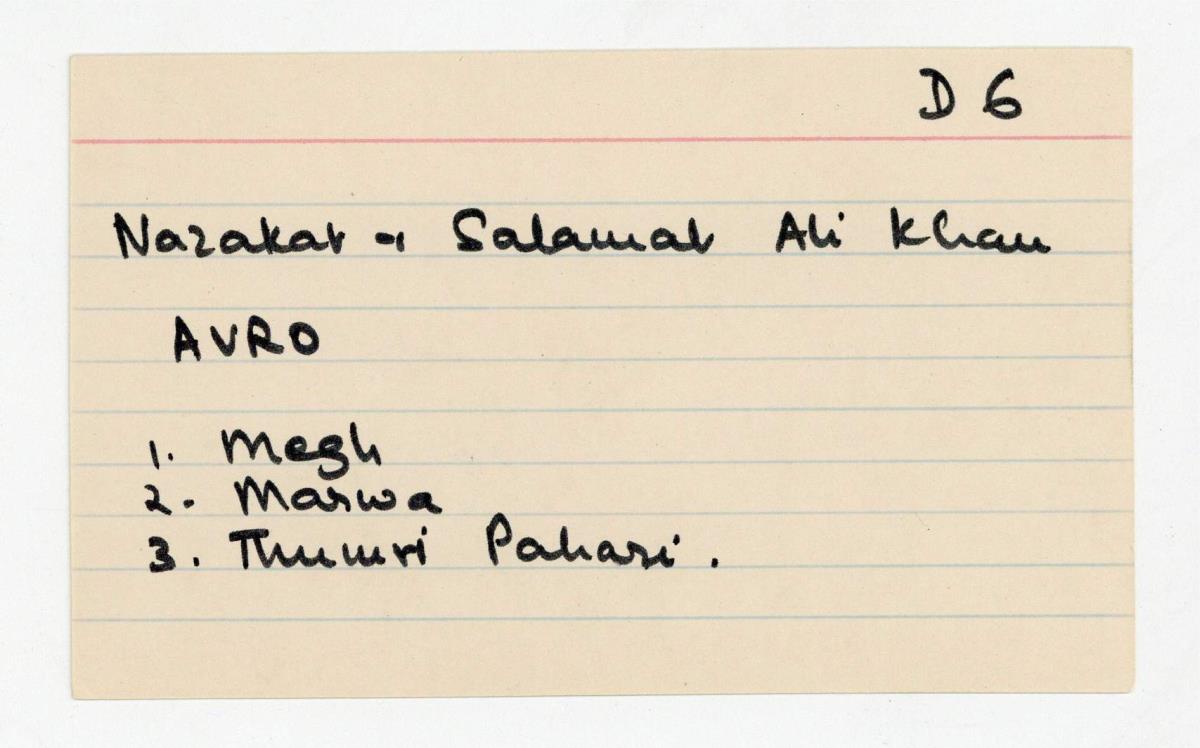 D 6
Nazakat & Salamat Ali Khan
AVRO
1. Megh
2. Marwa
3. Thumri Pahari.